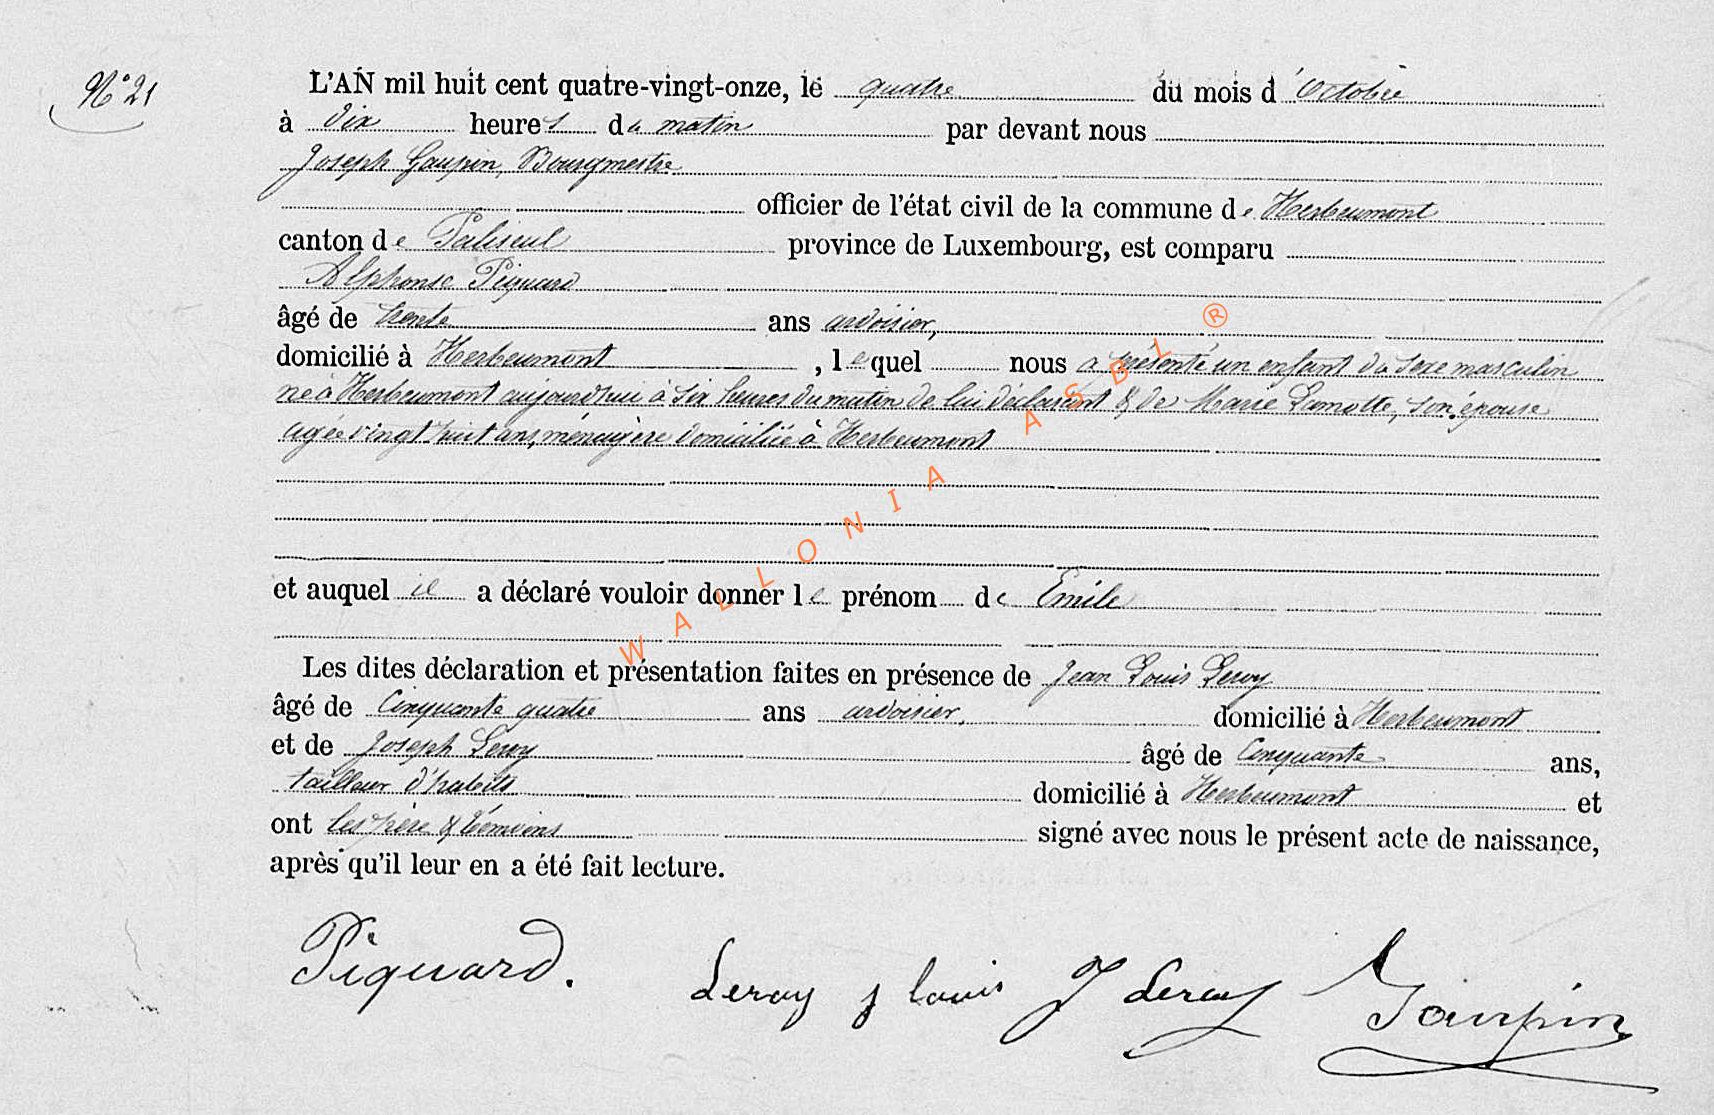 N° 21
L'AN mil huit cent quatre-vingt-onze, le quatre du mois d'Octobre
à dix heures du matin par devant nous
Joseph Gaupin, Bourgmestre
officier de l'état civil de la commune de Herbeumont
canton de Paliseul province de Luxembourg, est comparu
Alphonse Piquard
âgé de trente ans ardoisier,
domicilié à Herbeumont, lequel nous a présenté un enfant du sexe masculin
né à Herbeumont aujourd'hui à six heures du matin de lui déclarant & de Marie Lamotte, son épouse
agée vingt huit ans, ménagère domiciliée à Herbeumont
et auquel il a déclaré vouloir donner le prénom de Emile
Les dites déclaration et présentation faites en présence de Jean Louis Leroy
âgé de Cinquante quatre ans ardoisier, domicilié à Herbeumont
et de Joseph Leroy âgé de Cinquante ans,
tailleur d'habits domicilié à Herbeumont et
ont les père & témoins signé avec nous le présent acte de naissance,
après qu'il leur en a été fait lecture.
Piquard. Leroy j louis J Leroy Gaupin
WALLONIA ASBL ®